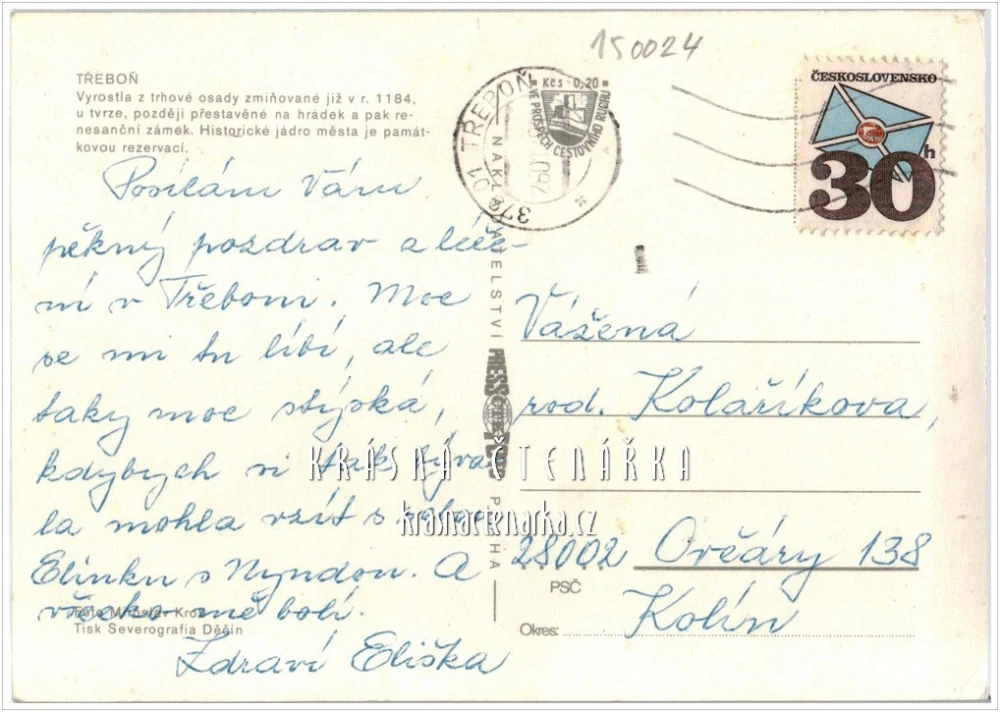 150024
TŘEBOŇ
Vyrostla z trhové osady zmiňované již v r. 1184,
u tvrze, později přestavěné na hrádek a pak re-
nesanční zámek. Historické jádro města je památ-
kovou rezervací.
Posílám Vám
pěkný pozdrav z léče-
ní v Třeboni. Moc
se mi tu líbí, ale
taky moc stýská,
kdybych si tak býva
la mohla vzít s sebou
Elinku s Nyndou. A
všecko mě bolí.
Zdraví Eliška
Foto Miroslav Krob
Tisk Severografia Děčín
379 01 TŘEBOŇ
Kčs 0,20
VE PROSPĚCH CESTOVNÍHO RUCHU
ČESKOSLOVENSKO
30h
NAKLADATELSTVÍ PRESSFOTO PRAHA
Vážená
rod. Kolaříkova,
28002 Ovčáry 138
PSČ
Kolín
Okres:
KRÁSNÁ ČTENÁŘKA
krasnactenarka.cz